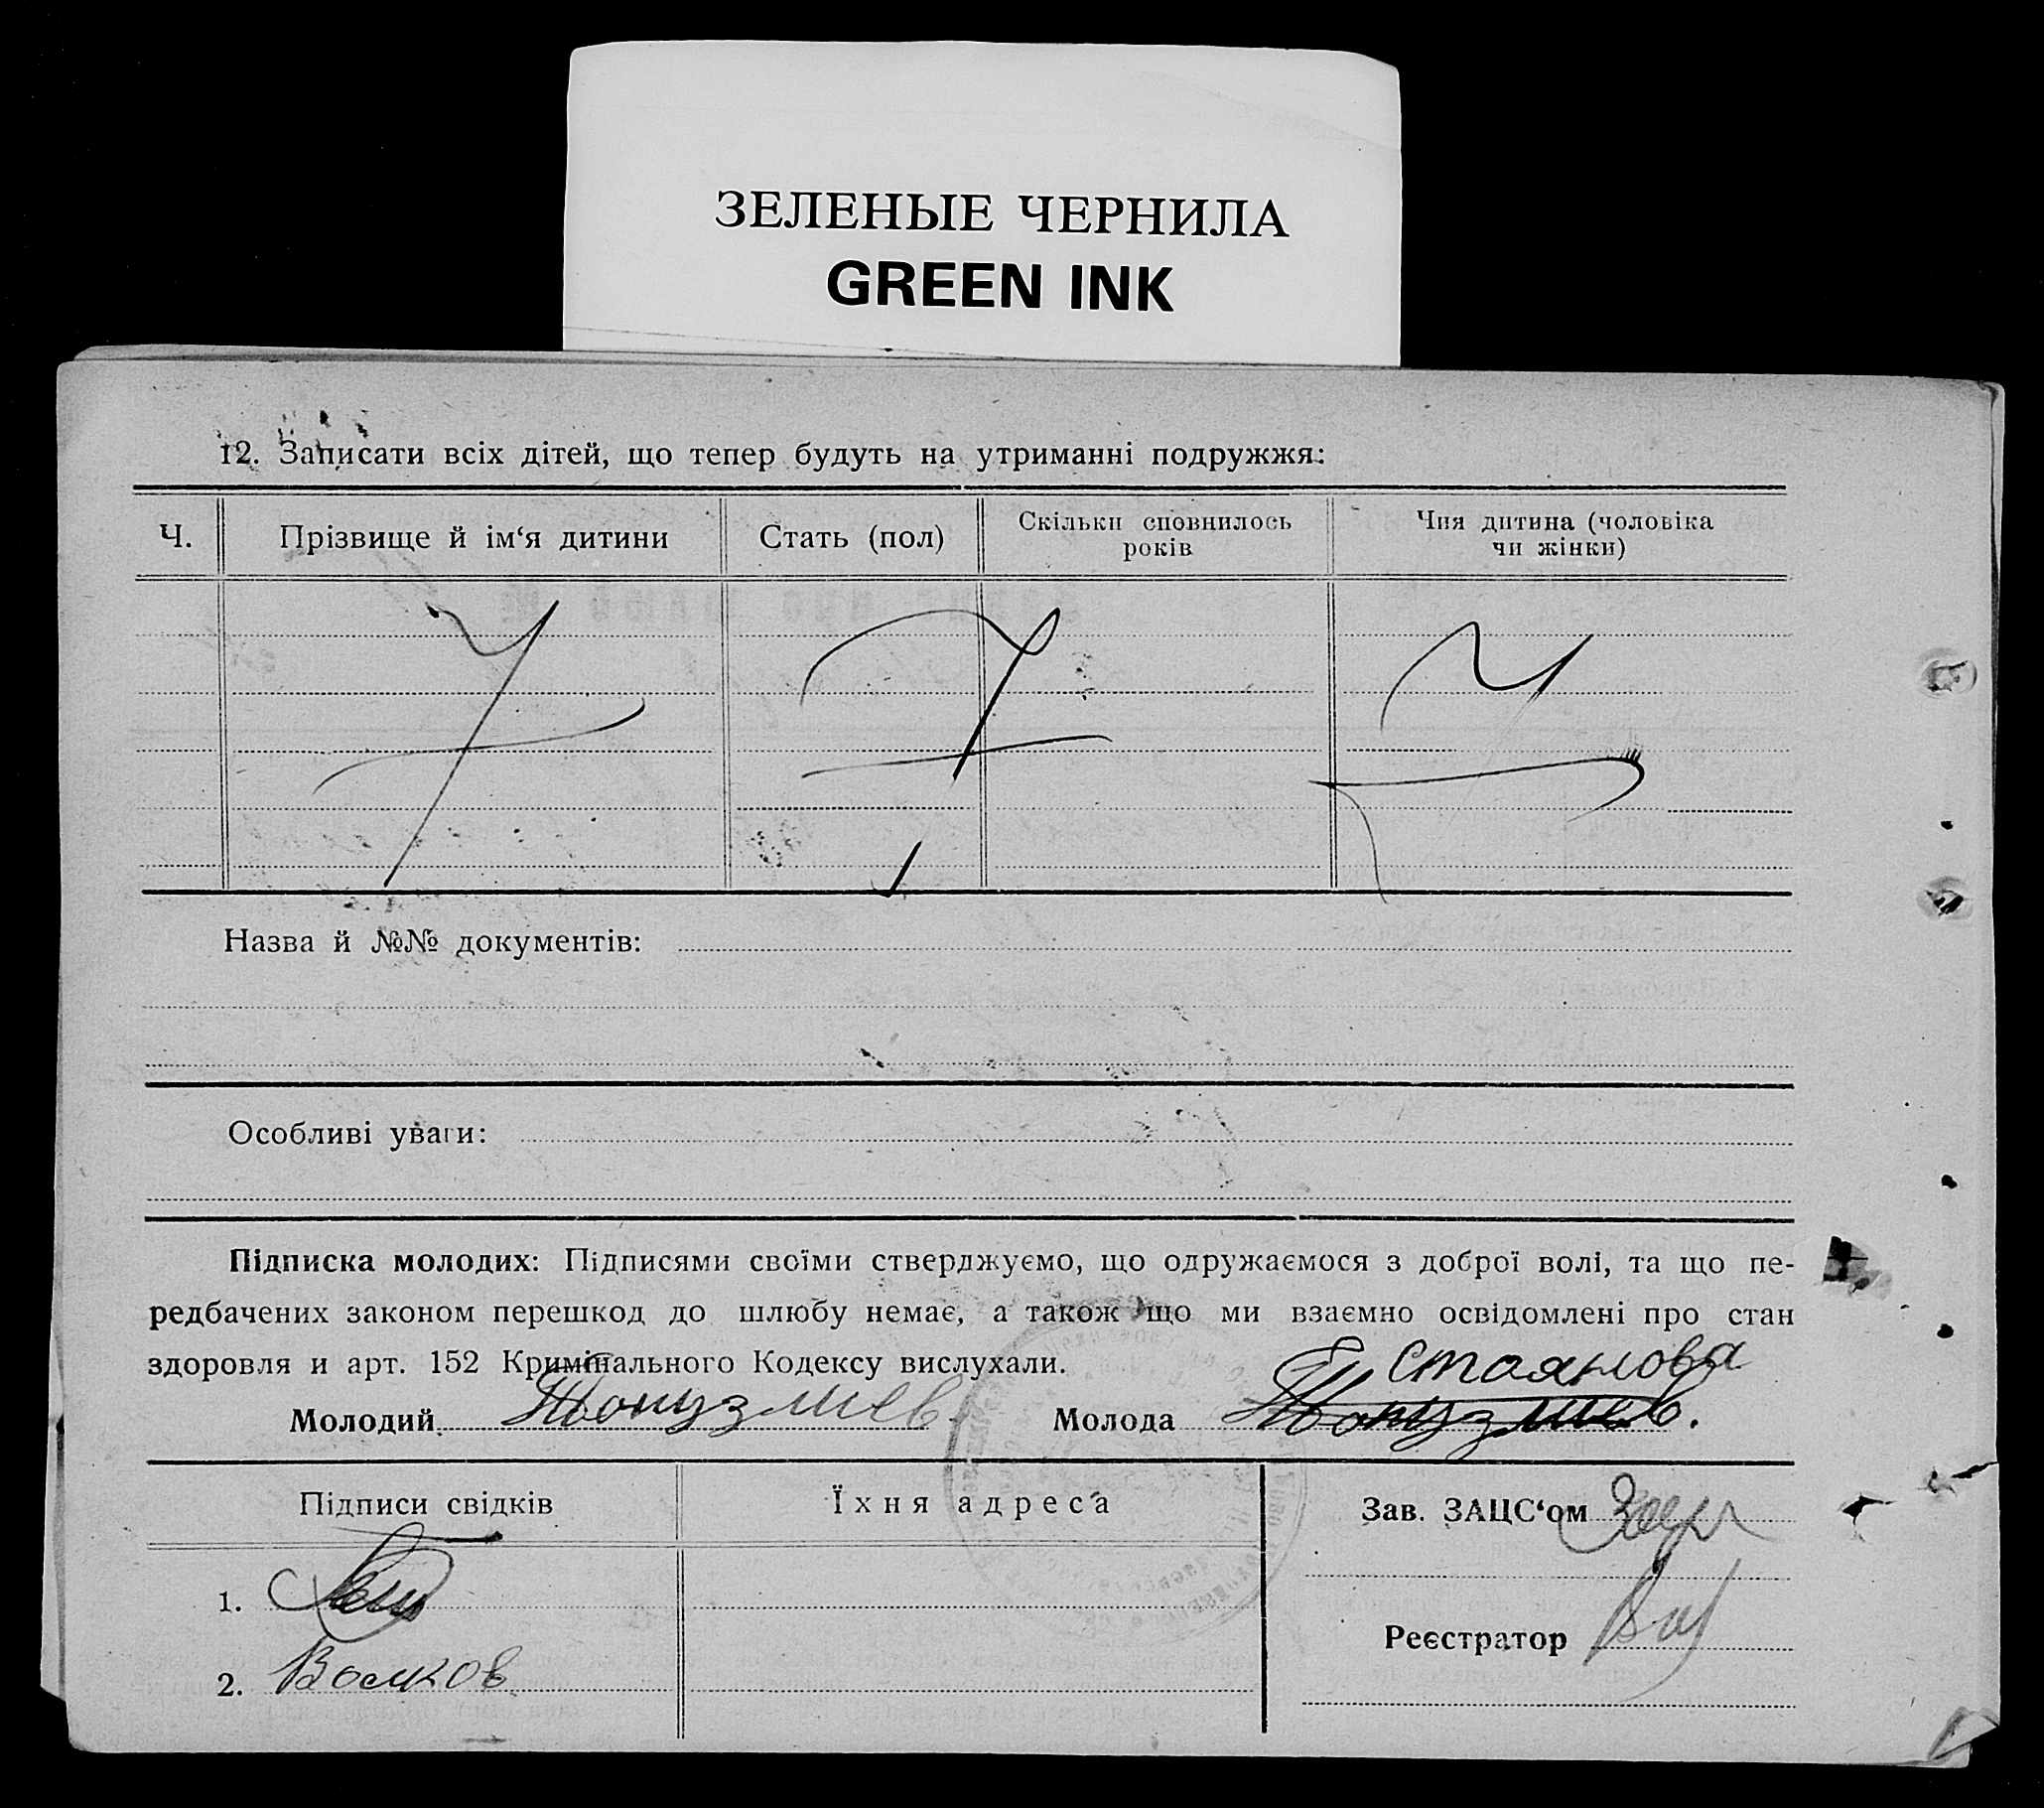 ЗЕЛЕНЫЕ ЧЕРНИЛА
GREEN INK
12. Записати всіх дітей, що тепер будуть на утриманні подружжя:
Ч.
Прізвище й ім‘я дитини
Стать (пол)
Скільки сповнилось
років
Чия дитина (чоловіка
чи жінки)
Назва й №№ документів:
Особливі уваги:
Підписка молодих: Підписями своїми стверджуємо, що одружаємося з доброї волі, та що пе-
редбачених законом перешкод до шлюбу немає, а також що ми взаємно освідомлені про стан
здоровля и арт. 152 Кримінального Кодексу вислухали.
Стоянова
Молодий Топузлиев Молода Топузлиев.
Підписи свідків
Їхня адреса
Зав. ЗАЦС‘ом
1.
Реєстратор
2. Волков